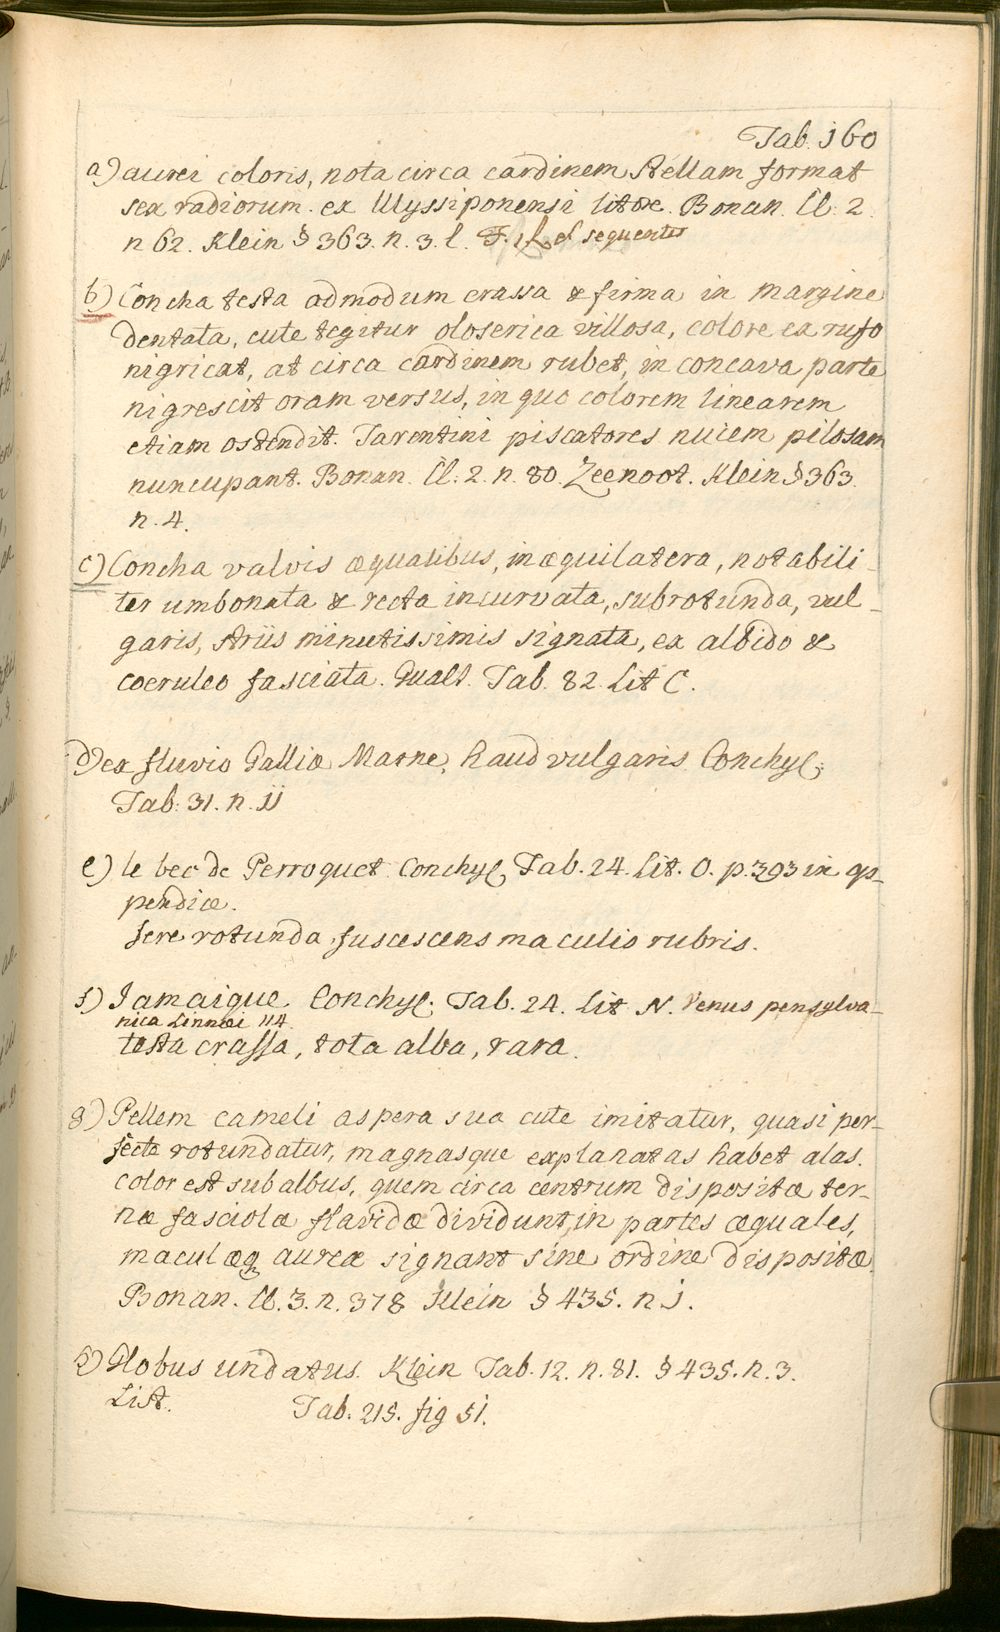 Tab. 160
a) aurei coloris, nota circa cardinem stellam format
sex radiorum. ex Ulyssiponensi litore. Bonan. Cl. 2.
n 62. Klein § 363. n. 3. l. et sequentes
b) Concha testa admodum crassa & firma in margine
dentata, cute tegitur oloserica villosa, colore ex rufo
nigricat, at circa cardinem rubet, in concava parte
nigrescit oram versus, in quo colorem linearem
etiam ostendit. Tarentini piscatores nucem pilosam
nuncupant. Bonan. Cl. 2. n. 80. Zeenoot. Klein § 363.
n. 4.
c) Concha valvis æqualibus, inæquilatera, notabili-
ter umbonata & recta incurvata, subrotunda, vul-
garis, striis minutissimis signata, ex albido &
coeruleo fasciata. Gualt. Tab. 82. Lit C.
d) ex fluvio Galliæ Marne, haud vulgaris. Conchyl.
Tab. 31. n. 11
e) le bec de Perroquet. Conchyl. Tab. 24. Lit. O. p. 393 in ap-
pendice.
fere rotunda, fuscescens maculis rubris.
f) Jamaique. Conchyl. Tab. 24. Lit N. Venus pensylva-
nica Linnæi 114.
testa crassa, tota alba, rara.
g) Pellem cameli aspera sua cute imitatur, quasi per-
fecte rotundatur, magnasque explanatas habet alas.
color est subalbus, quem circa centrum dispositæ ter-
næ fasciolæ flavidæ dividunt, in partes æquales,
maculæq aureæ signant sine ordine dispositæ.
Bonan. Cl. 3. n. 378 Klein § 435. n. 1.
h) Globus undatus. Klein Tab. 12. n. 81. § 435. n. 3.
List. Tab. 215. fig 51.